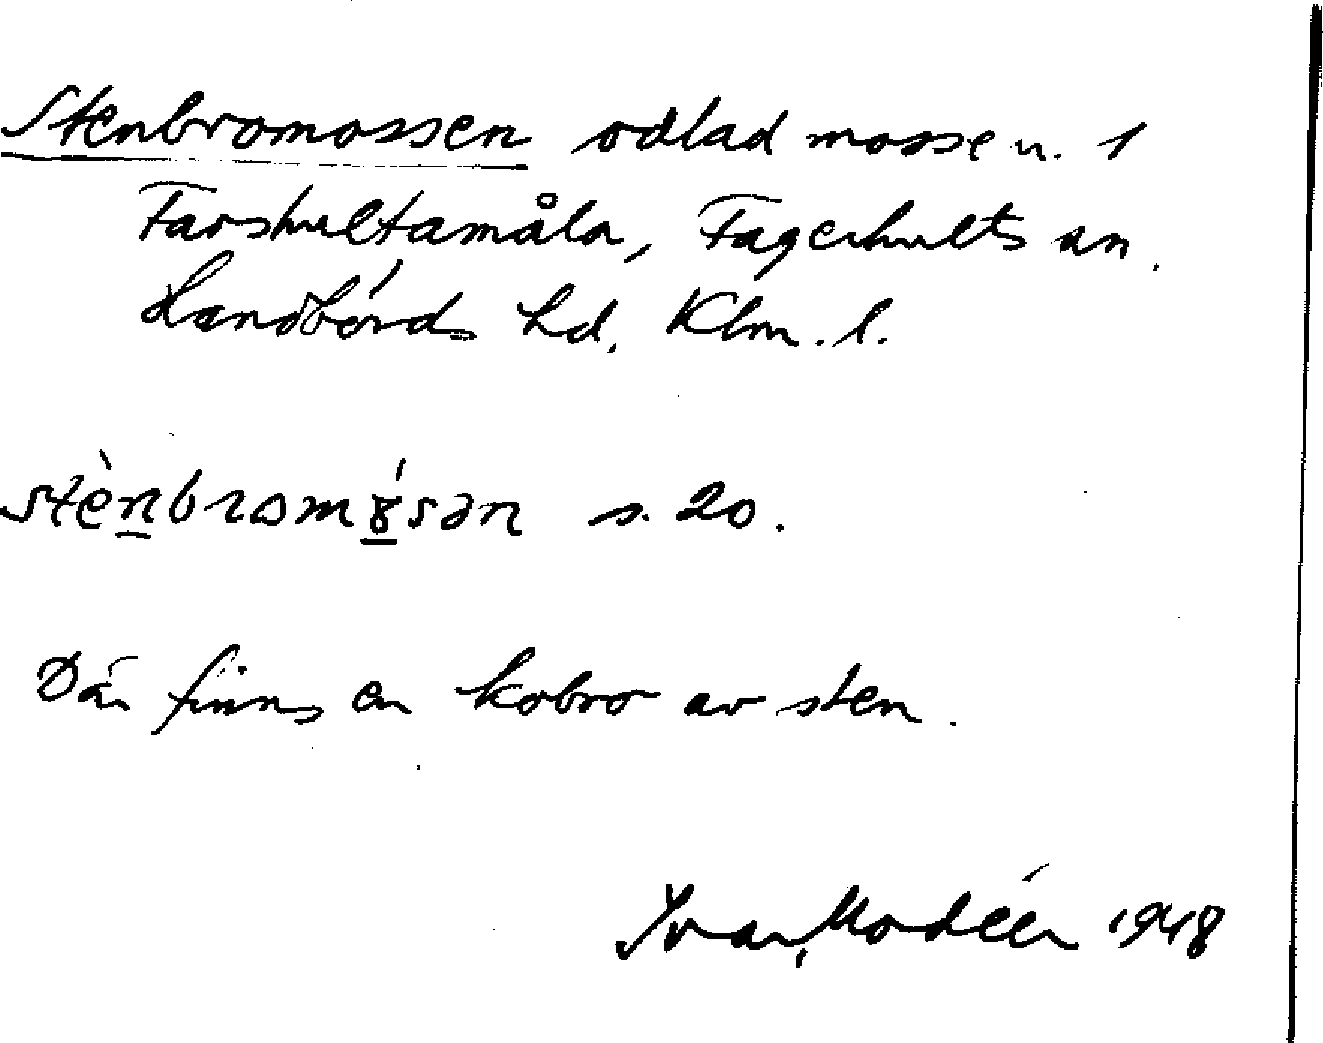 Stenbromossen odlad mosse u. 1
Farshultamåla, Fagerhults sn.
Handbörds hd. Klm. l.
stènbromɤ́sən s. 20.
Där finns en kobro av sten.
Ivar Modéer 1948